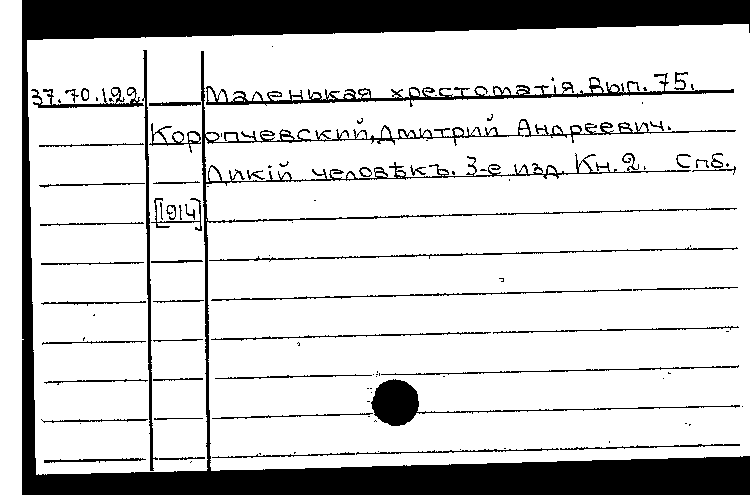 37.70.122. Маленькая хрестоматія. Вып. 75.
Коропчевский, Дмитрий Андреевич.
Дикій человѣкъ. 3-е изд. Кн. 2. Спб.,
[1914]